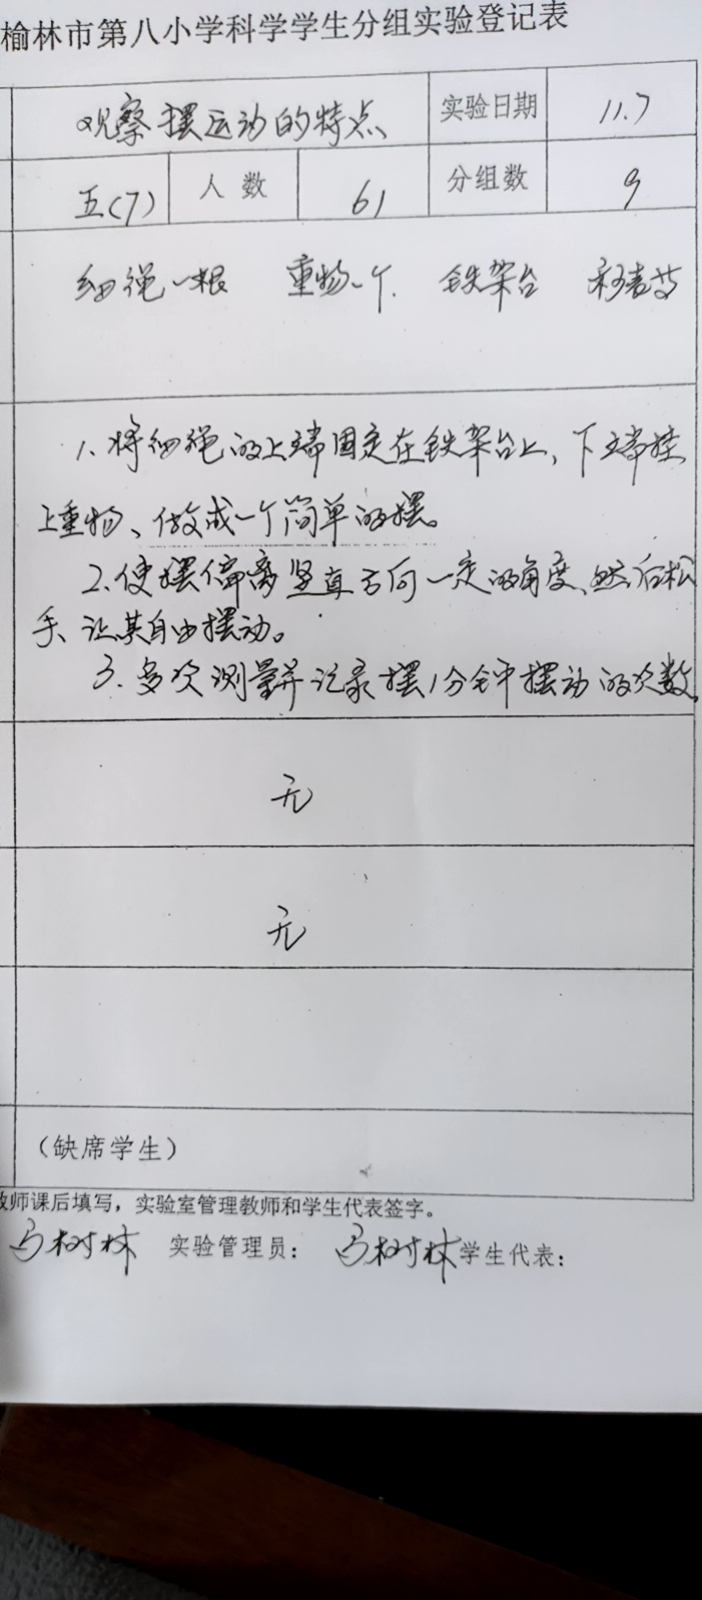 榆林市第八小学科学学生分组实验登记表
观察摆运动的特点 实验日期 11.7
五(7) 人数 61 分组数 9
细绳一根 重物一个. 铁架台 秒表等
1. 将细绳的上端固定在铁架台上、下端挂
上重物、做成一个简单的摆。
2. 使摆偏离竖直方向一定的角度、然后松
手、让其自由摆动。
3. 多次测量并记录摆1分钟摆动的次数.
无
无
(缺席学生)
教师课后填写,实验室管理教师和学生代表签字。
马树林 实验管理员: 马树林 学生代表: